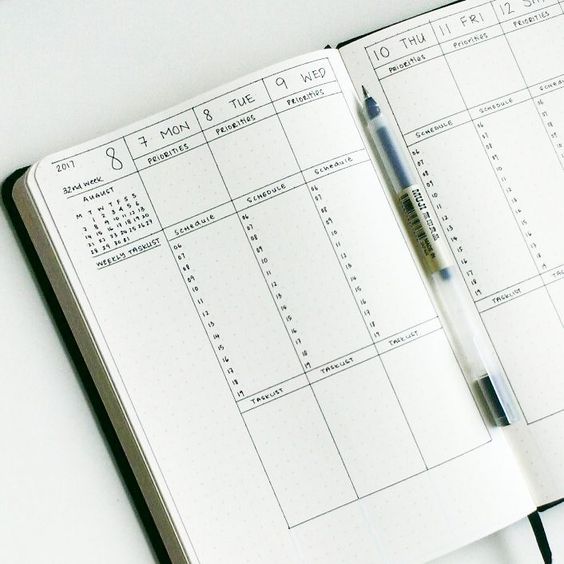 2017 8
32nd week
AUGUST
M T W T F S S
1 2 3 4 5 6
7 8 9 10 11 12 13
14 15 16 17 18 19 20
21 22 23 24 25 26 27
28 29 30 31
WEEKLY TASKLIST
7 MON
PRIORITIES
SCHEDULE
06
07
08
09
10
11
12
13
14
15
16
17
18
19
TASKLIST
8 TUE
PRIORITIES
SCHEDULE
06
07
08
09
10
11
12
13
14
15
16
17
18
19
TASKLIST
9 WED
PRIORITIES
SCHEDULE
06
07
08
09
10
11
12
13
14
15
16
17
18
19
TASKLIST
10 THU
PRIORITIES
SCHEDULE
06
07
08
09
10
11
12
13
14
15
16
17
18
19
TASKLIST
11 FRI
PRIORITIES
SCHEDULE
06
07
08
09
10
11
12
13
14
15
16
17
18
19
TASKLIST
12
PRIORITIES
SCHEDULE
06
07
08
09
10
11
12
MUJI